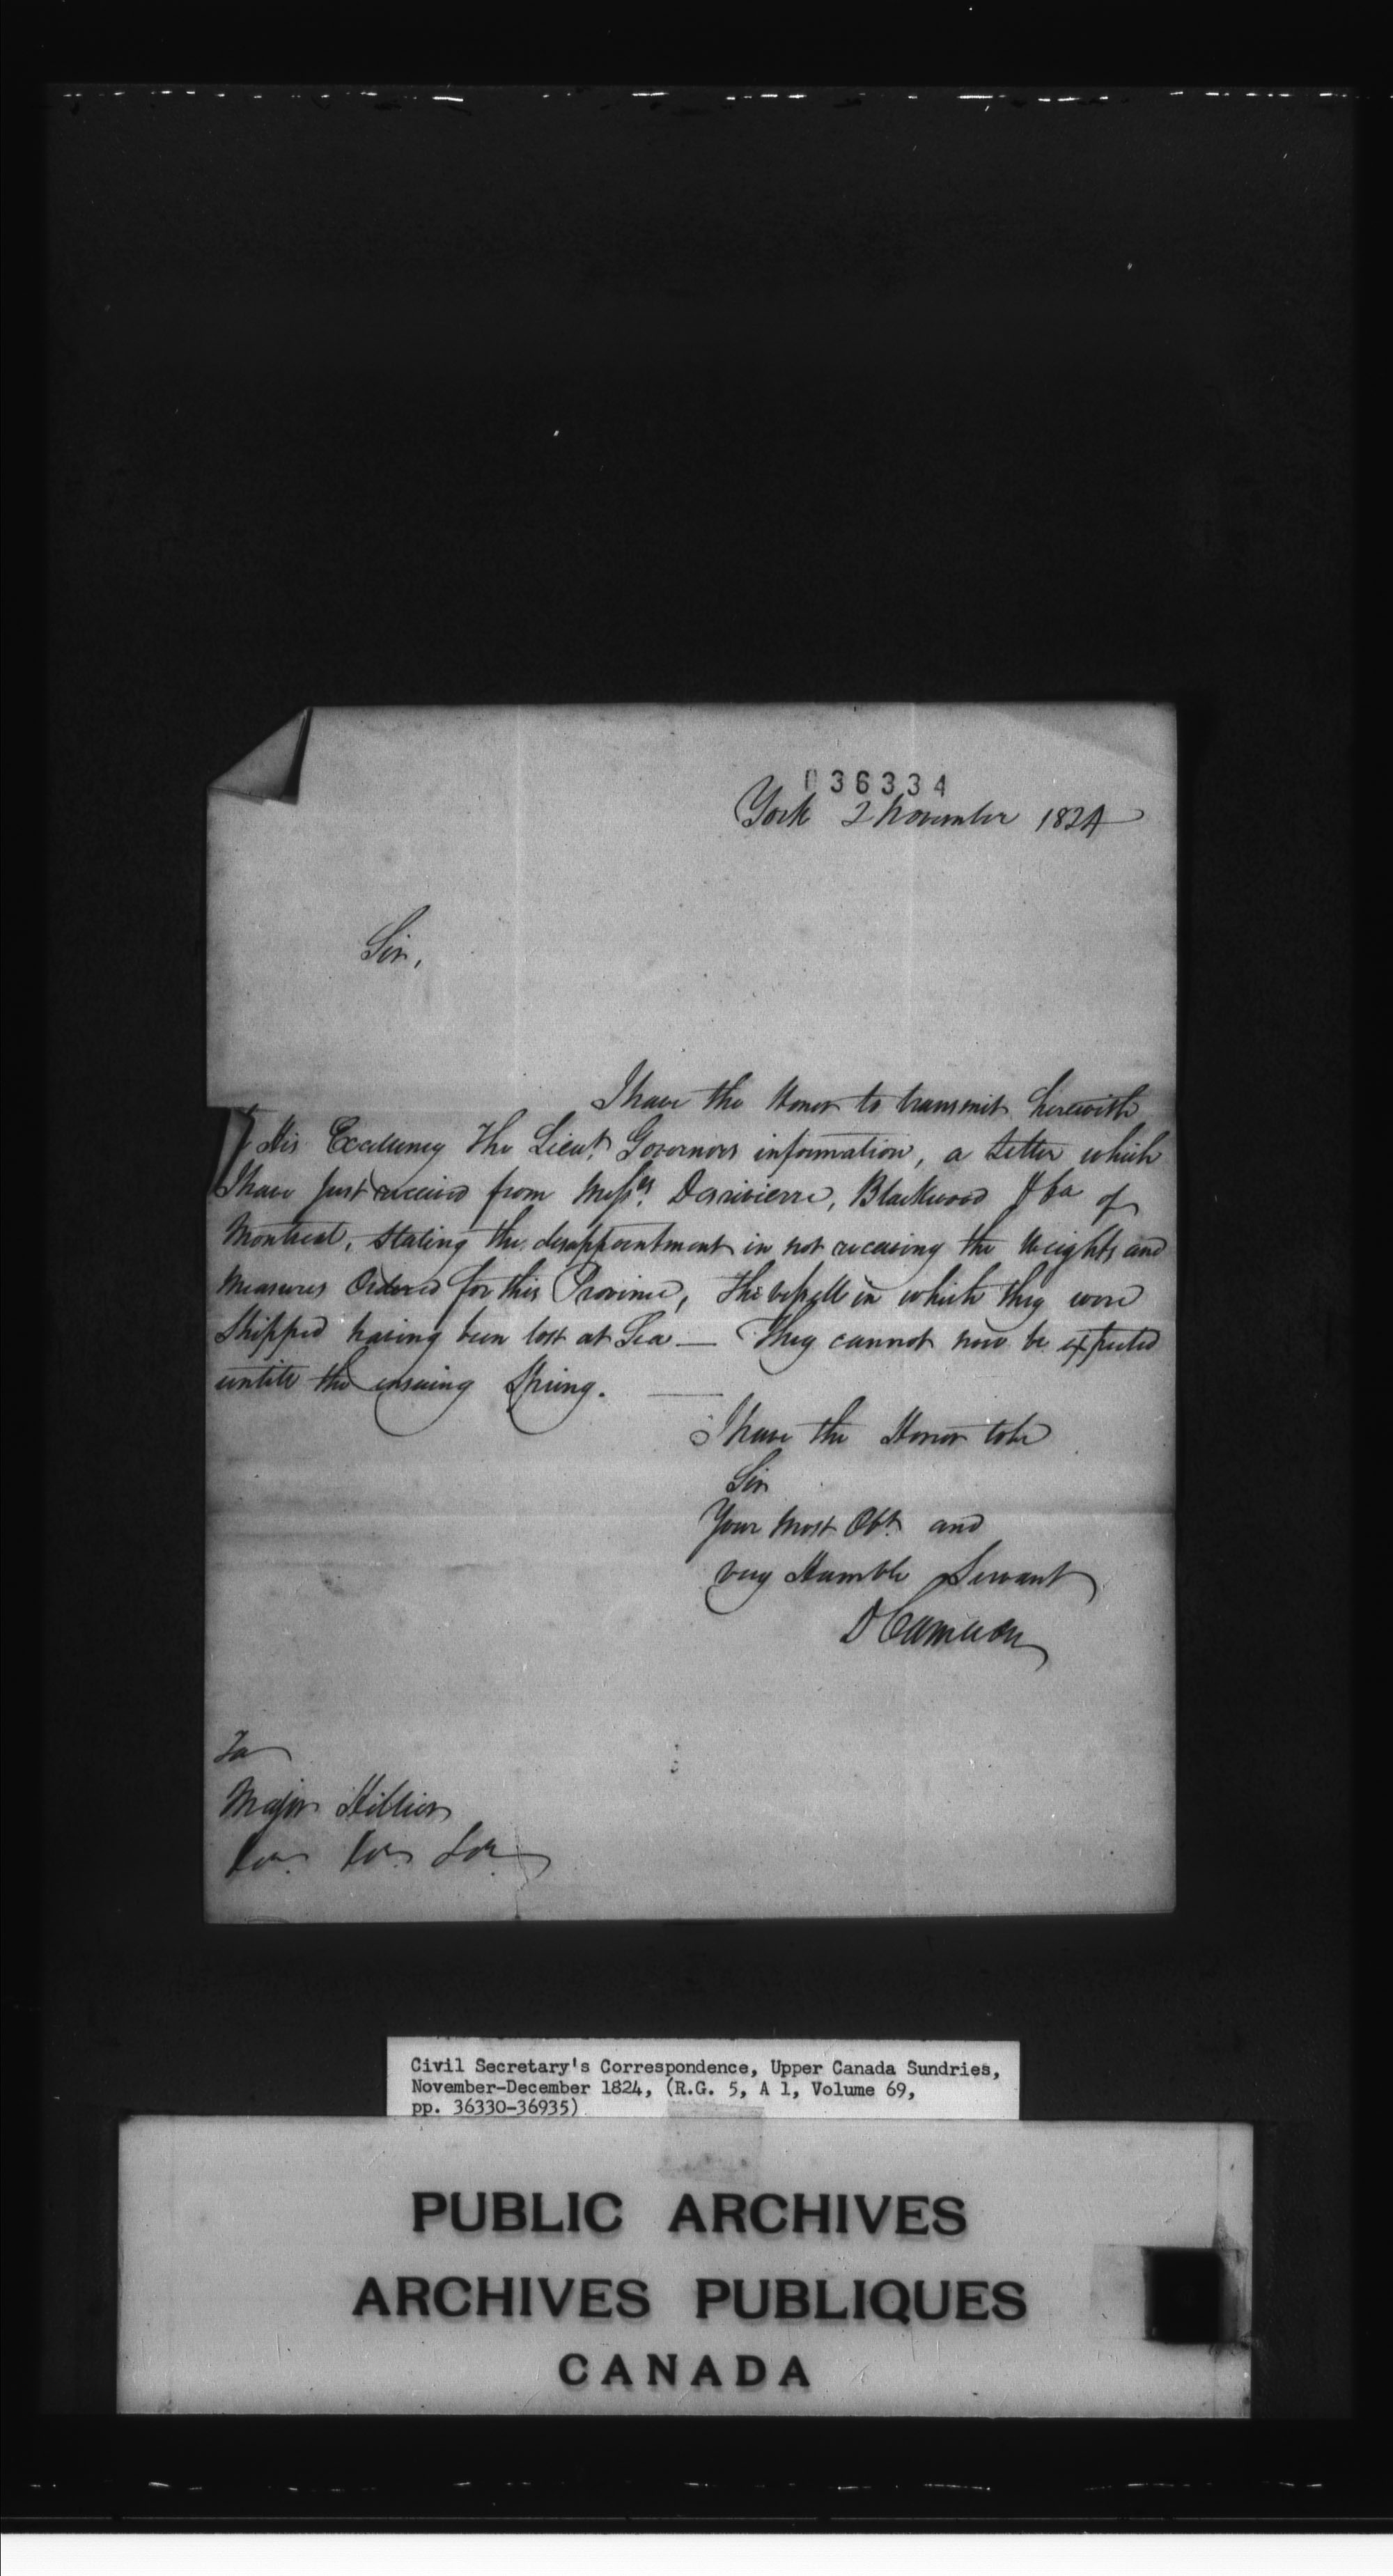 036334
York 2 November 1824
Sir,
I have the Honor to transmit herewith
His Excellency The Lieut. Governors information, a Letter which
I have just received from Messrs. Desrivierre, Blackwood & Co of
Montreal, stating the disappointment in not receiving the Weights and
Measures Ordered for this Province, The vessell in which they were
Shipped having been lost at Sea — They cannot now be expected
untill the ensuing Spring. —
I have the Honor to be
Sir
Your most Obt. and
very Humble Servant
D Cameron
To
Major Hillier
&c. &c. &c.
Civil Secretary's Correspondence, Upper Canada Sundries,
November-December 1824, (R.G. 5, A 1, Volume 69,
pp. 36330-36935)
PUBLIC ARCHIVES
ARCHIVES PUBLIQUES
CANADA